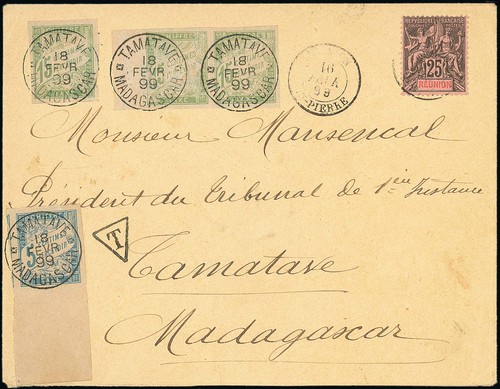 TAMATAVE
18
FEVR
99
MADAGASCAR
TAMATAVE
18
FEVR
99
MADAGASCAR
TAMATAVE
18
FEVR
99
MADAGASCAR
16
99
ST-PIERRE
25
RÉUNION
Monsieur Mansencal
Président du Tribunal de 1ère Instance
Tamatave
Madagascar
TAMATAVE
18
FEVR
99
MADAGASCAR
5
T